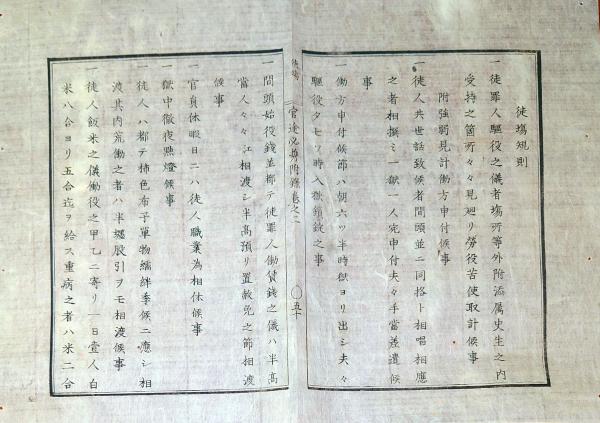 徒場規則
一徒罪人驅役之儀者場所等外附添属史生之内
受持之箇所々々見廻リ勞役苦使取計候事
附強弱見計働方申付候事
一徒人共世話致候者間頭並ニ同格ト相唱相應
之者相撰ミ一獄一人宛申付夫々手當差遣候
事
一働方申付候節ハ朝六ツ半時獄ヨリ出シ夫々
驅役夕七ツ時入獄鎖鋌之事
徒場
官途必携附録巻之二
〇五十
一間頭始役錢並都テ徒罪人働賃錢之儀ハ半高
當人々々江相渡シ半高預リ置赦免之節相渡
候事
一官員休暇日ニハ徒人職業為相休候事
一獄中徹夜點燈候事
一徒人ハ都テ柿色布子單物襦袢季候ニ應シ相
渡其内荒働之者ハ半纏股引ヲモ相渡候事
一徒人飯米之儀働役之甲乙ニ寄リ一日壹人白
米八合ヨリ五合迄ヲ給ス重病之者ハ米二合